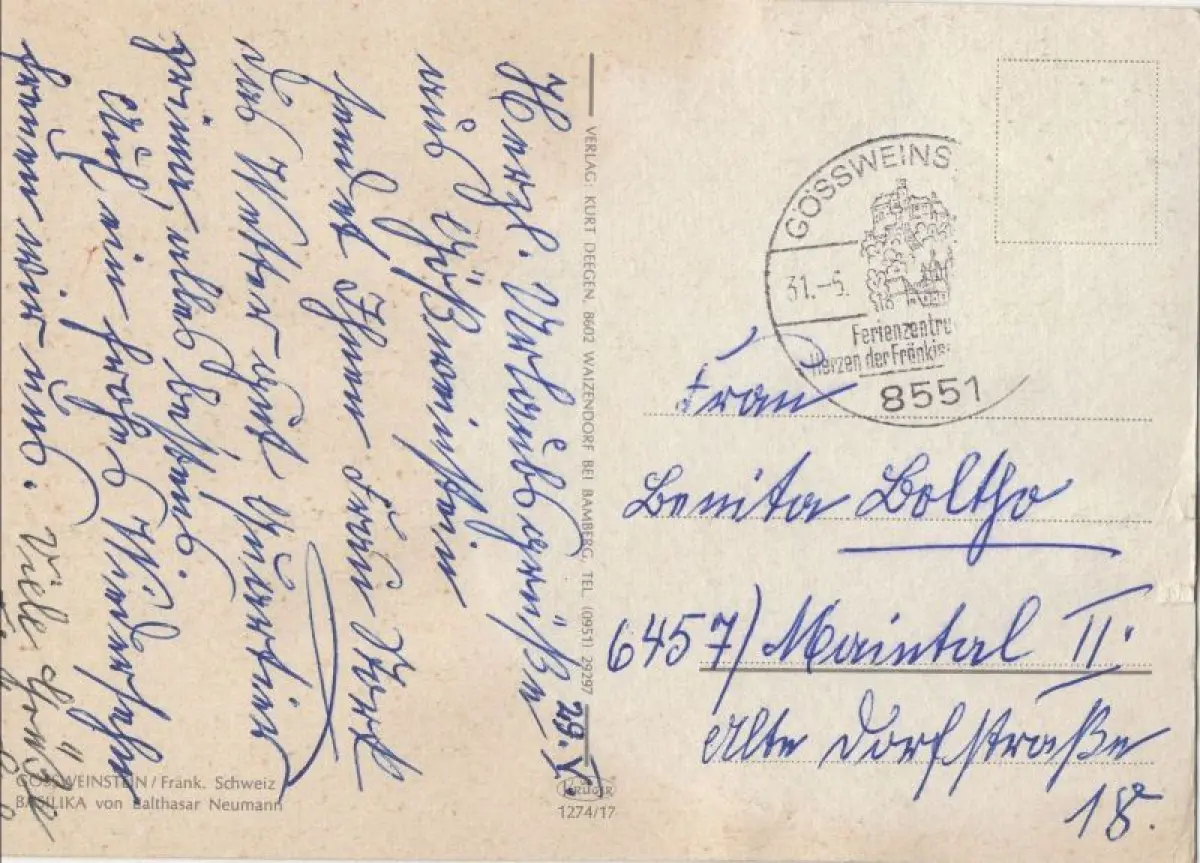 Herzl. Urlaubsgrüße
aus Gößweinstein
sendet Ihnen Frau Kort
das Wetter gut Quartier
prima, alles bestens.
Auf ein frohes Wiedersehn
freuen wir uns. Viele Grüße
29. V.
VERLAG: KURT DEEGEN, 8602 WAIZENDORF BEI BAMBERG, TEL. (0951) 29297
KRÜGER
1274/17
GÖSSWEINSTEIN / Fränk. Schweiz
BASILIKA von Balthasar Neumann
GÖSSWEINS
31.-5.
Ferienzentru
Herzen der Fränkis
8551
Frau
Benita Boltho
6457) Maintal II.
Alte Dorfstraße
18.